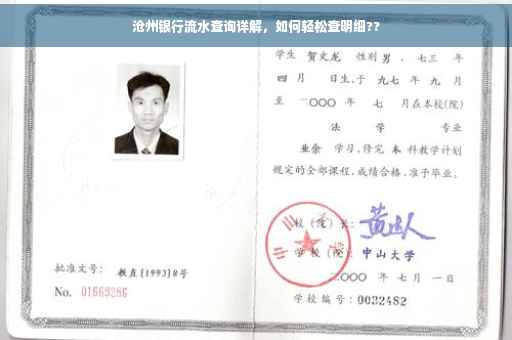 沧州银行流水查询详解，如何轻松查明细??
学生 贺文龙 性别 男 、七三 年
四 月 日生，于 九七 年 九 月
至 二〇〇〇 年 七 月在本校(院)
法 学 专业
业余 学习，修完 本 科教学计划
规定的全部课程，成绩合格，准予毕业。
校（院）长：
学校（院）：中山大学
二〇〇〇 年 七 月 一 日
学校编号：0032482
批准文号：教直[1993]8号
No. 01663286